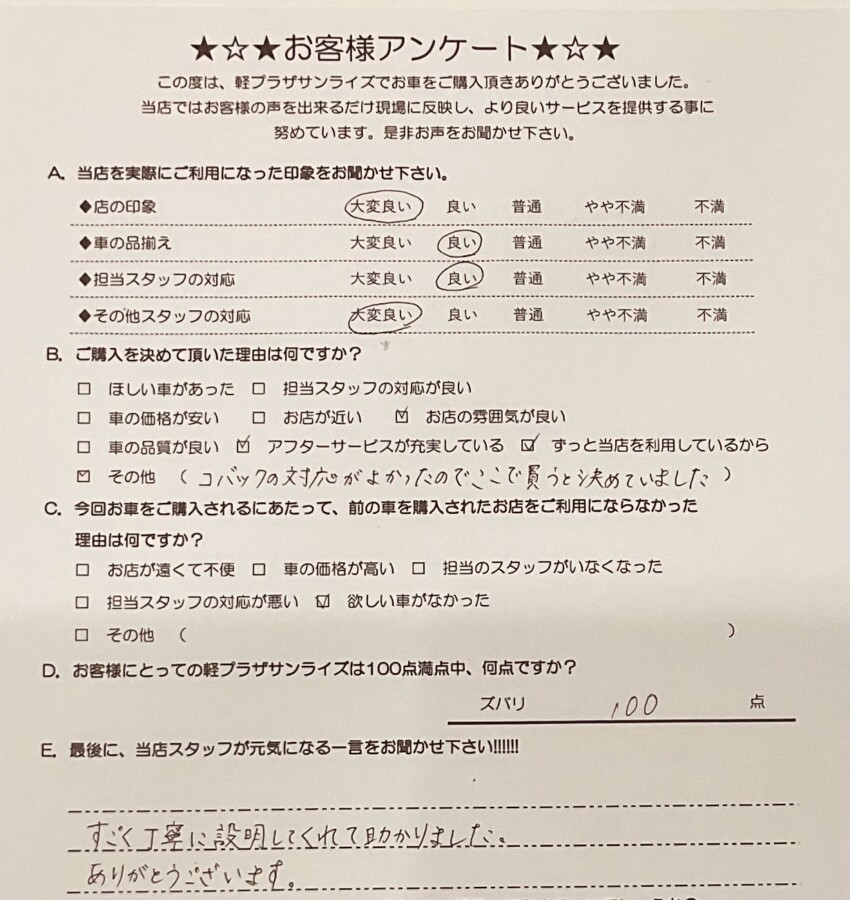 ★☆★お客様アンケート★☆★
この度は、軽プラザサンライズでお車をご購入頂きありがとうございました。
当店ではお客様の声を出来るだけ現場に反映し、より良いサービスを提供する事に
努めています。是非お声をお聞かせ下さい。
A. 当店を実際にご利用になった印象をお聞かせ下さい。
◆店の印象 大変良い 良い 普通 やや不満 不満
◆車の品揃え 大変良い 良い 普通 やや不満 不満
◆担当スタッフの対応 大変良い 良い 普通 やや不満 不満
◆その他スタッフの対応 大変良い 良い 普通 やや不満 不満
B. ご購入を決めて頂いた理由は何ですか?
□ ほしい車があった □ 担当スタッフの対応が良い
□ 車の価格が安い □ お店が近い ☑ お店の雰囲気が良い
□ 車の品質が良い ☑ アフターサービスが充実している ☑ ずっと当店を利用しているから
☑ その他 (コバックの対応がよかったのでここで買うと決めていました)
C. 今回お車をご購入されるにあたって、前の車を購入されたお店をご利用にならなかった
理由は何ですか?
□ お店が遠くて不便 □ 車の価格が高い □ 担当のスタッフがいなくなった
□ 担当スタッフの対応が悪い ☑ 欲しい車がなかった
□ その他 ( )
D. お客様にとっての軽プラザサンライズは100点満点中、何点ですか?
ズバリ 100 点
E. 最後に、当店スタッフが元気になる一言をお聞かせ下さい!!!!!!
すごく丁寧に説明してくれて助かりました。
ありがとうございます。